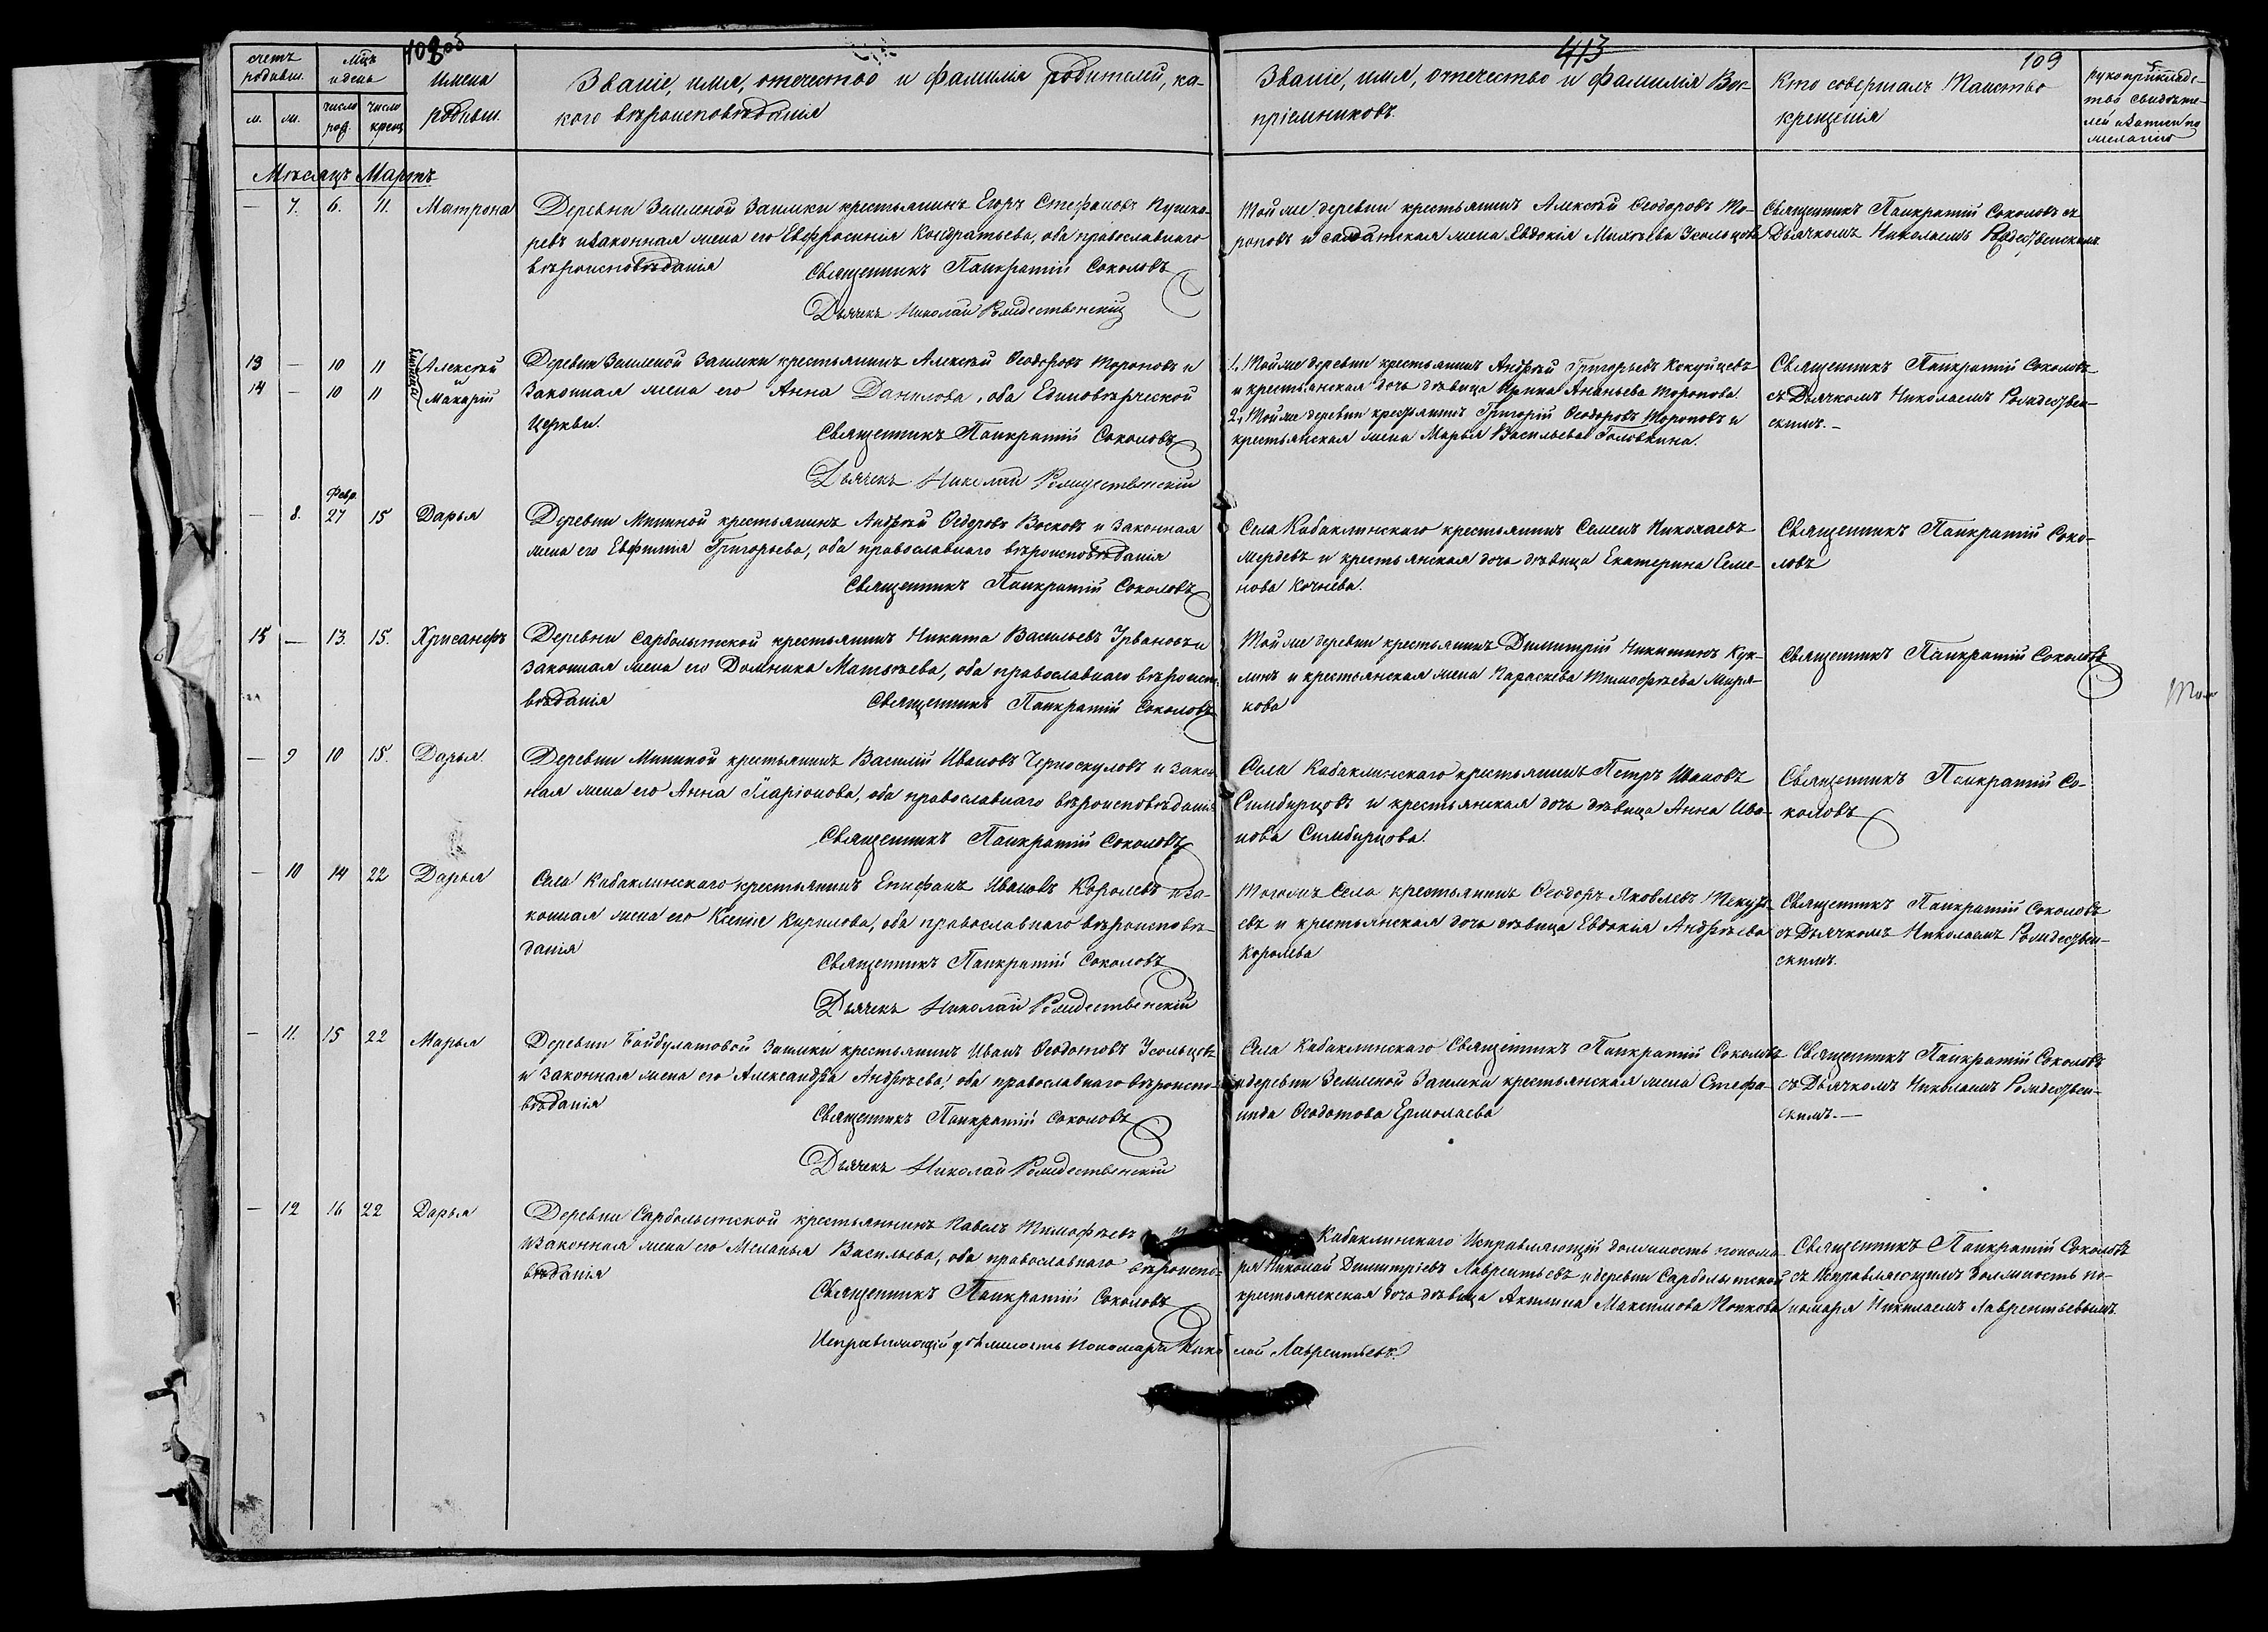 108об
413
109
счетъ родивш.
м. ж.
мцъ и день
число рожд. число крещ.
имена родивш.
Званіе, имя, отечество и фамилія родителей, ка-
кого вѣроисповѣданія
Званіе, имя, отечество и фамилія Вос-
пріемниковъ.
Кто совершалъ Таинство
крещенія
рукоприкладс-
тво свидѣте-
лей записи по
желанію
Мѣсяцъ Мартъ
— 7. 6. 11. Матрона
Деревни Земленой Заимки крестьянинъ Егоръ Стефановъ Пушка-
ревъ и законная жена его Евфросинія Кондратьева, оба православнаго
вѣроисповѣданія
Священникъ Панкратій Соколовъ
Дьячекъ Николай Рождественскій
Той же деревни крестьянинъ Алексѣй Ѳеодоровъ То-
роповъ и солдатская жена Евдокія Михѣева Усольцова
Священникъ Панкратій Соколовъ съ
Дьячкомъ Николаемъ Рождественскимъ
13 — 10 11 Алексѣй
и
14 — 10 11 Макарій
близнецы
Деревни Земленой Заимки крестьянинъ Алексѣй Ѳеодоровъ Тороповъ и
Законная жена его Анна Данилова, оба Единовѣрческой
Церкви.
Священникъ Панкратій Соколовъ
Дьячекъ Николай Рождественскій
1. Той же деревни крестьянинъ Андрей Григорьевъ Кокуйцевъ
и крестьянская дочь дѣвица Ирина Ананьева Торопова.
2. Той же деревни крестьянинъ Григорій Ѳеодоровъ Тороповъ и
крестьянская жена Марья Васильева Головкина.
Священникъ Панкратій Соколовъ
съ Дьячкомъ Николаемъ Рождествен-
скимъ. —
Февр.
— 8. 27 15 Дарья
Деревни Мининой крестьянинъ Андрей Ѳедоровъ Восковъ и законная
жена его Евфимія Григорьева, оба православнаго вѣроисповѣданія
Священникъ Панкратій Соколовъ
Села Кабаклинскаго крестьянинъ Семенъ Николаевъ
Мердевъ и крестьянская дочь дѣвица Екатерина Семе-
нова Кочнева.
Священникъ Панкратій Соко-
ловъ
15 — 13. 15. Хрисанфъ
Деревни Сарболытской крестьянинъ Никита Васильевъ Урвановъ и
законная жена его Домника Матвѣева, оба православнаго вѣроиспо-
вѣданія
Священникъ Панкратій Соколовъ
Той же деревни крестьянинъ Димитрій Никитинъ Кук-
линъ и крестьянская жена Параскева Тимофѣева Миря-
кова
Священникъ Панкратій Соколовъ
— 9 10 15. Дарья.
Деревни Мининой крестьянинъ Василій Ивановъ Черноскуловъ и закон-
ная жена его Анна Иларіонова, оба православнаго вѣроисповѣданія
Священникъ Панкратій Соколовъ
Села Кабаклинскаго крестьянинъ Петръ Ивановъ
Симбирцовъ и крестьянская дочь дѣвица Анна Ива-
нова Симбирцова.
Священникъ Панкратій Со-
коловъ
— 10 14 22 Дарья
Села Кабаклинскаго крестьянинъ Епифанъ Ивановъ Королевъ и за-
конная жена его Ксенія Кирилова, оба православнаго вѣроисповѣ-
данія
Священникъ Панкратій Соколовъ
Дьячекъ Николай Рождественскій
Тогожъ Села крестьянинъ Ѳеодоръ Яковлевъ Текутъ-
евъ и крестьянская дочь дѣвица Евдокія Андрѣева
Королева
Священникъ Панкратій Соколовъ
съ Дьячкомъ Николаемъ Рождествен-
скимъ.
— 11. 15 22 Марья
Деревни Байбулатовой Заимки крестьянинъ Иванъ Ѳеодотовъ Усольцевъ
и законная жена его Александра Андрѣева, оба православнаго вѣроиспо-
вѣданія
Священникъ Панкратій Соколовъ
Дьячекъ Николай Рождественскій
Села Кабаклинскаго Священникъ Панкратій Соколовъ
и деревни Земленой Заимки крестьянская жена Стефа-
нида Ѳеодотова Ермолаева
Священникъ Панкратій Соколовъ
съ Дьячкомъ Николаемъ Рождествен-
скимъ. —
— 12 16 22 Дарья
Деревни Сарболытской крестьянинъ Павелъ Тимофѣевъ
и законная жена его Меланья Васильева, оба православнаго вѣроиспо-
вѣданія
Священникъ Панкратій Соколовъ
Исправляющій должность Пономаря Нико лай Лаврентьевъ
Кабаклинскаго Исправляющій должность понома-
ря Николай Димитріевъ Лаврентьевъ и деревни Сарболытской
крестьянская дочь дѣвица Акилина Максимова Попкова
Священникъ Панкратій Соколовъ
съ Исправляющимъ должность по-
номаря Николаемъ Лаврентьевымъ.